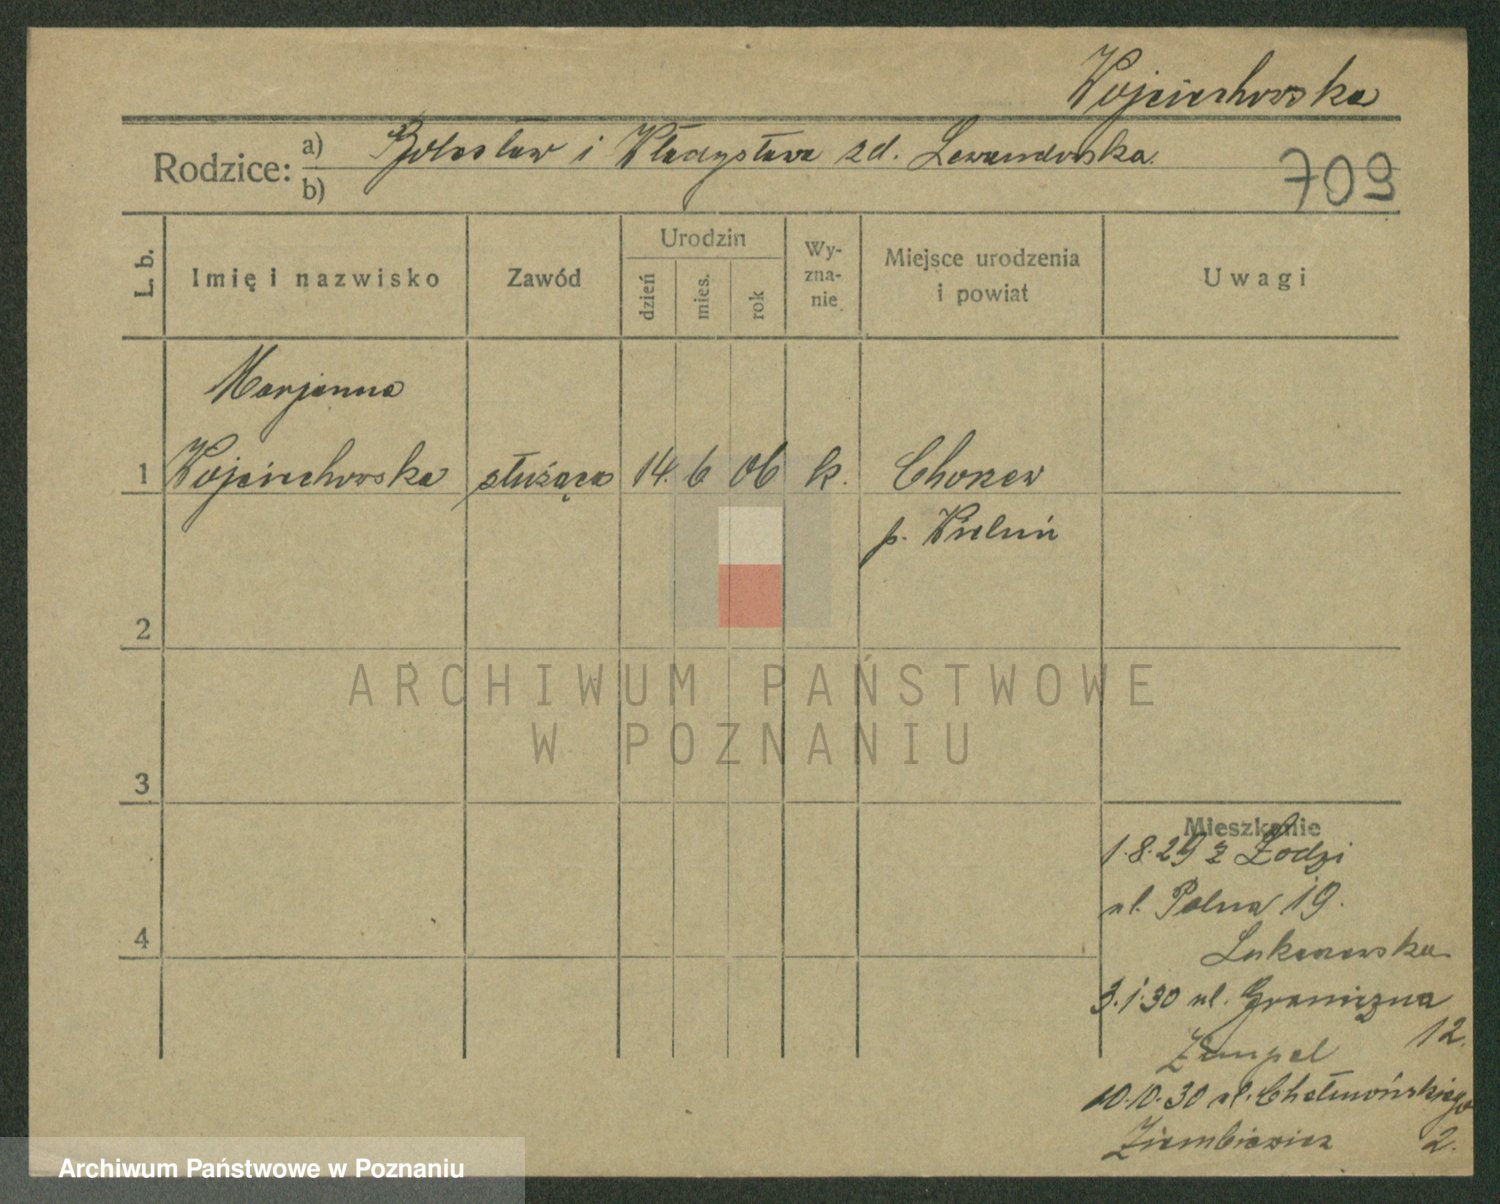 Wojciechowska
Rodzice: a) Bolesław i Władysława zd. Lewandowska.
b)
709
L. b.
Imię i nazwisko
Zawód
Urodzin
dzień
mies.
rok
Wy-
zna-
nie
Miejsce urodzenia
i powiat
Uwagi
Marjanna
1 Wojciechowska służąca 14. 6 06 k. Chorzew
p. Wieluń
2
ARCHIWUM PAŃSTWOWE
W POZNANIU
3
Mieszkanie
1.8.29 z Łodzi
ul. Polna 19.
4
3.1.30 ul. Graniczna
12.
10.10.30 ul. Chełmońskiego
Ziembiewicz 2.
Archiwum Państwowe w Poznaniu